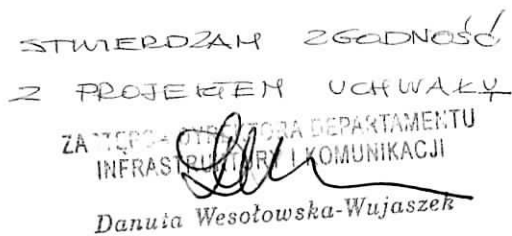 STWIERDZAM ZGODNOŚĆ
Z PROJEKTEM UCHWAŁY
ZASTĘPCA DYREKTORA DEPARTAMENTU
INFRASTRUKTURY I KOMUNIKACJI
Danuta Wesołowska-Wujaszek